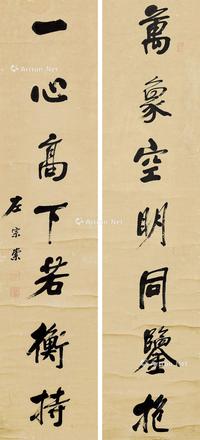 萬象空明同鑒抱
一心高下若衡持
左宗棠